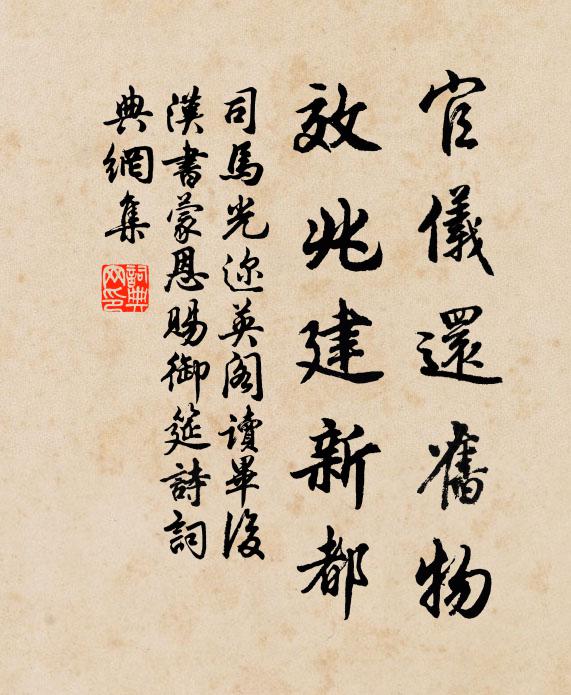 官儀還舊物
效兆建新都
司馬光迩英閣讀畢後
漢書蒙恩賜御筵詩詞
典網集
詞典
网印